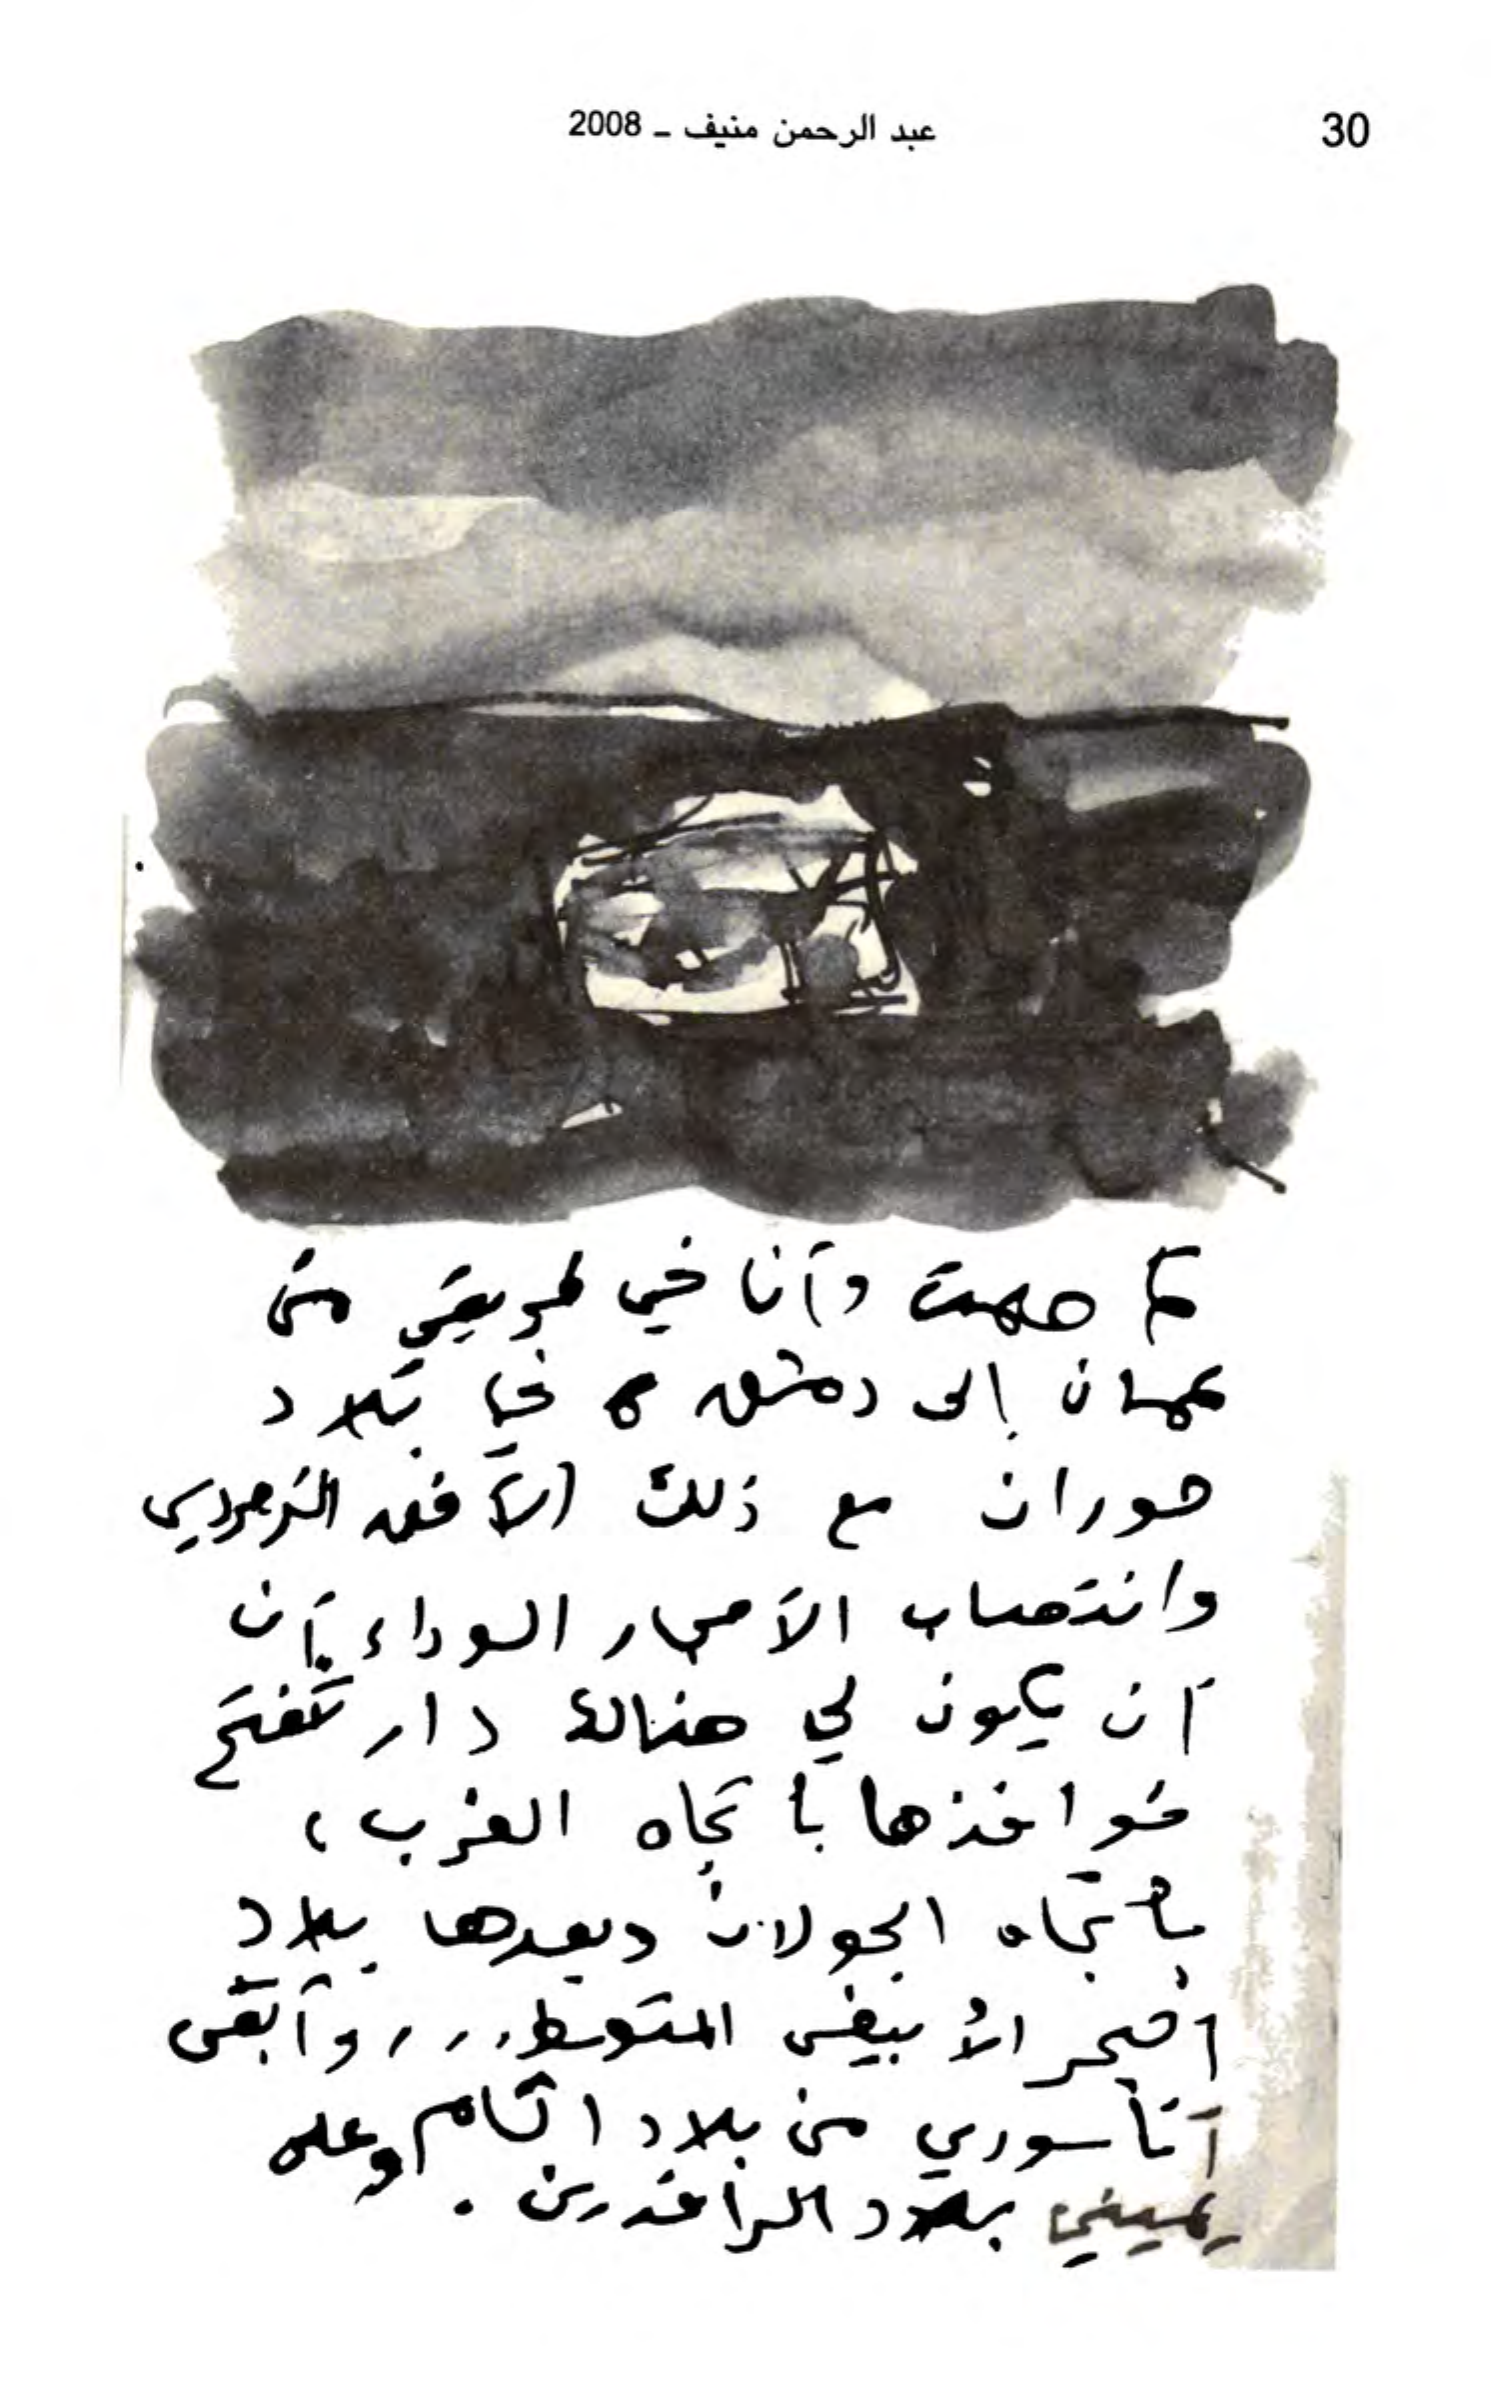 30
عبد الرحمن منيف ـ 2008
كم حلمت وأنا في طريقي من
عمان إلى دمشق في بلاد
حوران مع ذلك الأفق الرمادي
وانتصاب الأحجار السوداء بأن
أن يكون لي هنالك دار تنفتح
نوافذها باتجاه الغرب،
باتجاه الجولان وبعدها بلاد
البحر الأبيض المتوسط... وأبقى
أنا سوري من بلاد الشام وعلى
يميني بلاد الرافدين.